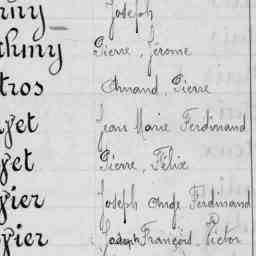 Joseph
thiny Pierre, Jérome
tros Amand, Pierre
yet Jean Marie Ferdinand
yet Pierre, Félix
yier Joseph Ange Ferdinand
yier Joseph François, Victor